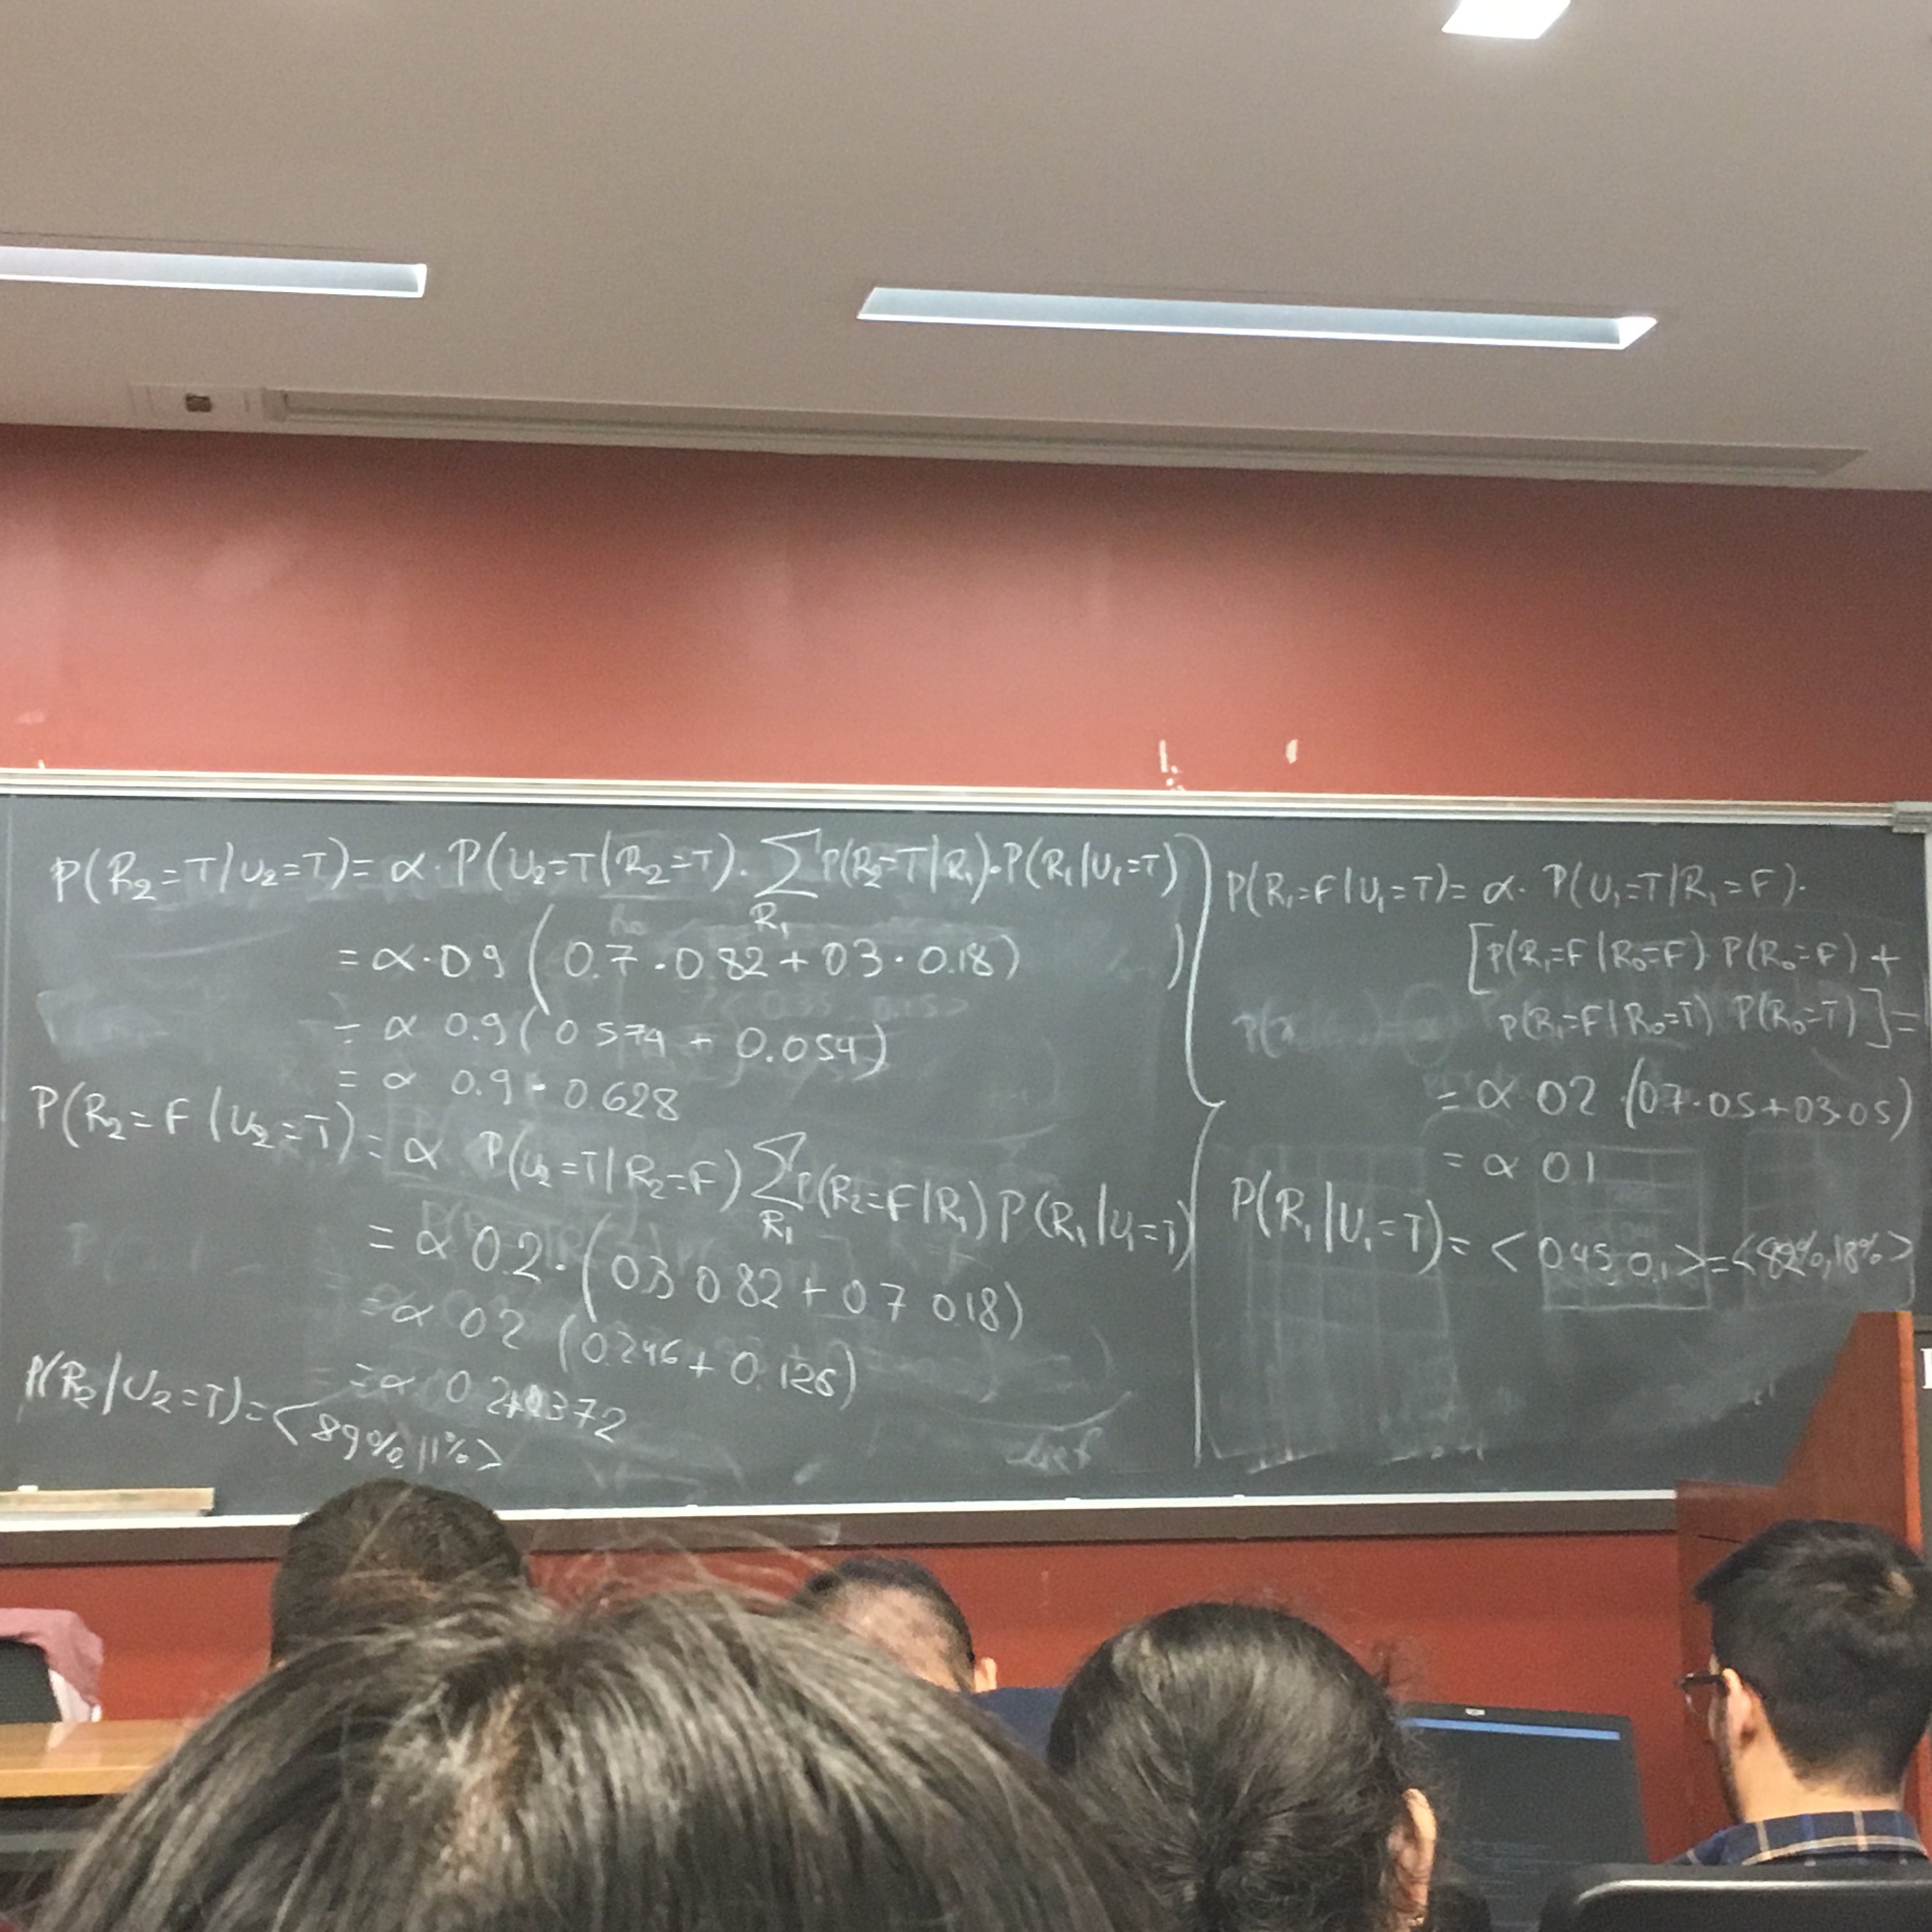 P(R₂=T/U₂=T)= α· P(U₂=T|R₂=T). ∑ P(R₂=T|R₁)·P(R₁|U₁=T)
R₁
= α·0.9 ( 0.7·0.82 + 03·0.18)
= α 0.9 (0 574 + 0.054)
= α 0.9 · 0.628
P(R₂=F|U₂=T) = α P(U₂=T|R₂=F) ∑ P(R₂=F|R₁) P(R₁|U₁=T)
R₁
= α 0.2·(03 0 82 + 0 7 018)
= α 02 (0.246 + 0.126)
= α 0.2 0372
P(R₂/U₂=T)=<89%, 11%>
P(R₁=F|U₁=T)= α· P(U₁=T|R₁=F)·
[P(R₁=F|R₀=F) P(R₀=F) +
P(R₁=F|R₀=T) P(R₀=T)]=
= α 02·(07·05+03·05)
= α 01
P(R₁|U₁=T)= < 0.45, 0.1 > = <82%, 18%>